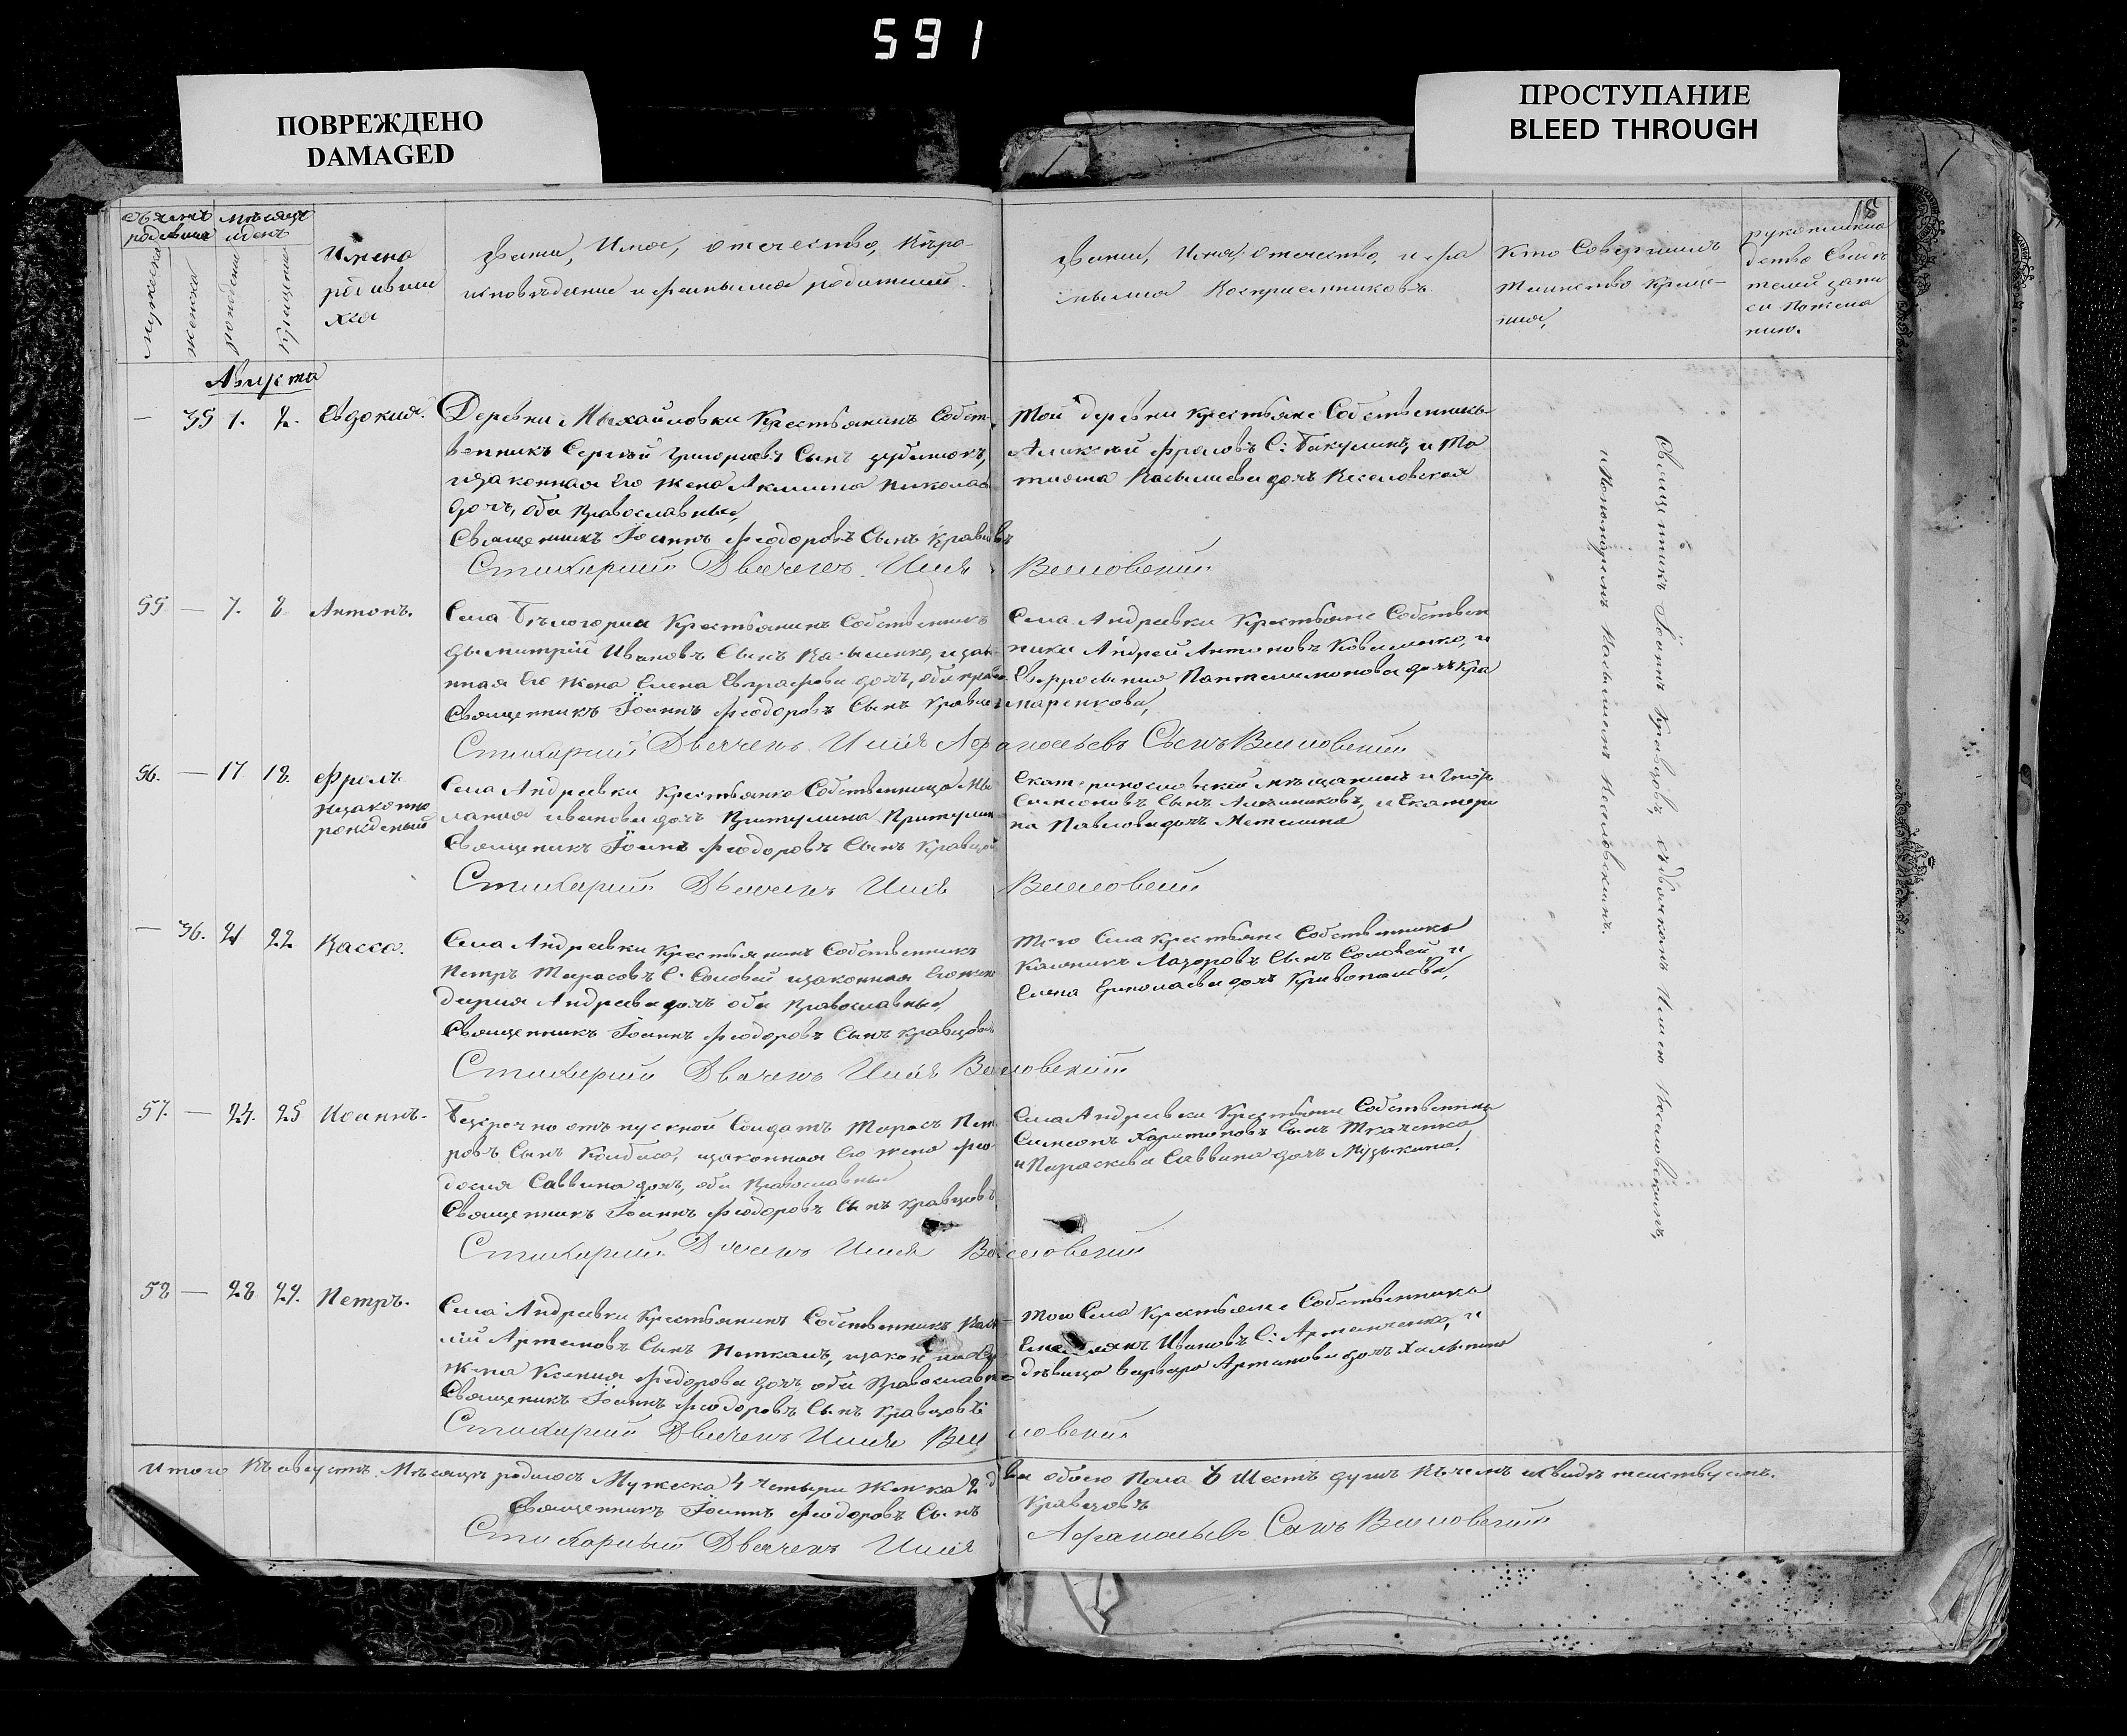 591
ПОВРЕЖДЕНО
DAMAGED
ПРОСТУПАНИЕ
BLEED THROUGH
18
мѣсяцъ
и день
Мужеска
женска
рожденiя
крещенiя
Имена
родивши
хся
Званiе, Имя, отечество, Вѣро-
исповѣданiе и фамилiя родителей.
Званiе, Имя, отечество, и фа
милiя Воспрiемниковъ
Кто Совершилъ
Таинство Креще-
нiя,
рукоприкла
дство Свидѣ
телей запи
си по жела
нiю.
Августа
— 35 1. 2. Евдокия.
Деревни Михайловки Крестьянинъ Собст-
венникъ Сергѣй Григорiевъ Сынъ
изаконная Его жена Акилина Николаева
дочь, оба Православные,
Священникъ Iоаннъ Феодоровъ Сынъ Кравцовъ
Стихарный Дьячекъ Илiя Веселовскiй
Той деревни Крестьяне Собственники
Алексѣй Фроловъ С: Бакулинъ, и Та
тiана Васильева дочь Веселовская
55 — 7. 8 Антонъ.
Села Бѣлогорiя Крестьянинъ Собственникъ
Дымитрiй Ивановъ Сынъ Василенко, и зако-
нная Его жена Елена Евграфова дочь, оба прав.
Священникъ Iоаннъ Феодоровъ Сынъ Кравцовъ
Стихарный Дьячекъ Илiя Афанасьевъ Сынъ Веселовскiй
Села Андреевки Крестьяне Собствен
ники Андрей Антоновъ Коваленко, и
Евфросинiя Пантелимонова дочь Кра
маренкова,
56. — 17 18. Фролъ
незаконно
рожденный
Села Андреевки Крестьянка Собственница Ме
ланiя Иванова дочь Притулина
Священикъ Iоаннъ Феодоровъ Сынъ Кравцовъ
Стихарный Дьячекъ Илiя Веселовскiй
Екатеринославскiй мѣщанинъ Игнатъ
Симоновъ Сынъ и Екатери
на Павлова дочь
— 36. 21 22 Васса.
Села Андреевки Крестьянинъ Собственникъ
Петръ Тарасовъ С. Соловей изаконная Его жена
Дарiя Андреева дочь оба Православные,
Священникъ Iоаннъ Феодоровъ Сынъ Кравцовъ
Стихарный Дьячекъ Илiя Веселовскiй
Того Села Крестьяне Собственники
Калиникъ Лазоровъ Сынъ Соловей и
Елена Ермолаева дочь Кривопалова,
57. — 24. 25 Иоаннъ.
Безсрочно отпускной Солдатъ Тарасъ Пет
ровъ Сынъ Колбаса, изаконная Его жена Фео
досiя Саввина дочь, оба Православные
Священникъ Iоаннъ Феодоровъ Сынъ Кравцовъ
Стихарный Дьячекъ Илiя Веселовскiй
Села Андреевки Крестьяне Собственники
Симеонъ Харитоновъ Сынъ Ткаченко
и Параскева Саввина дочь Музыкина.
58 — 28 29. Петръ.
Села Андреевки Крестьянинъ Собственникъ Васи
лiй Артемовъ Сынъ
жена Ксенiя Федорова дочь оба Православные
Священикъ Iоаннъ Феодоровъ Сынъ Кравцовъ
Стихарный Дьячекъ Илiя Веселовскiй
Того Села Крестьяне Собственники
Емельянъ Ивановъ С: Артемченко, и
дѣвица Варвара Артемова дочь
Священникъ Iоаннъ Кравцовъ, съ дьячкомъ Илiею Веселовскимъ,
и Пономаремъ Василiемъ Веселовскимъ.
Итого Въ августѣ Мѣсяцѣ родилось Мужеска 4 четыри Женска 2 два обоего Пола 6 Шесть душъ Въ чемъ и свидѣтельствуемъ.
Священникъ Iоаннъ Феодоровъ Сынъ Кравцовъ
Стихарный Дьячекъ Илiя Афанасьевъ Сынъ Веселовскiй